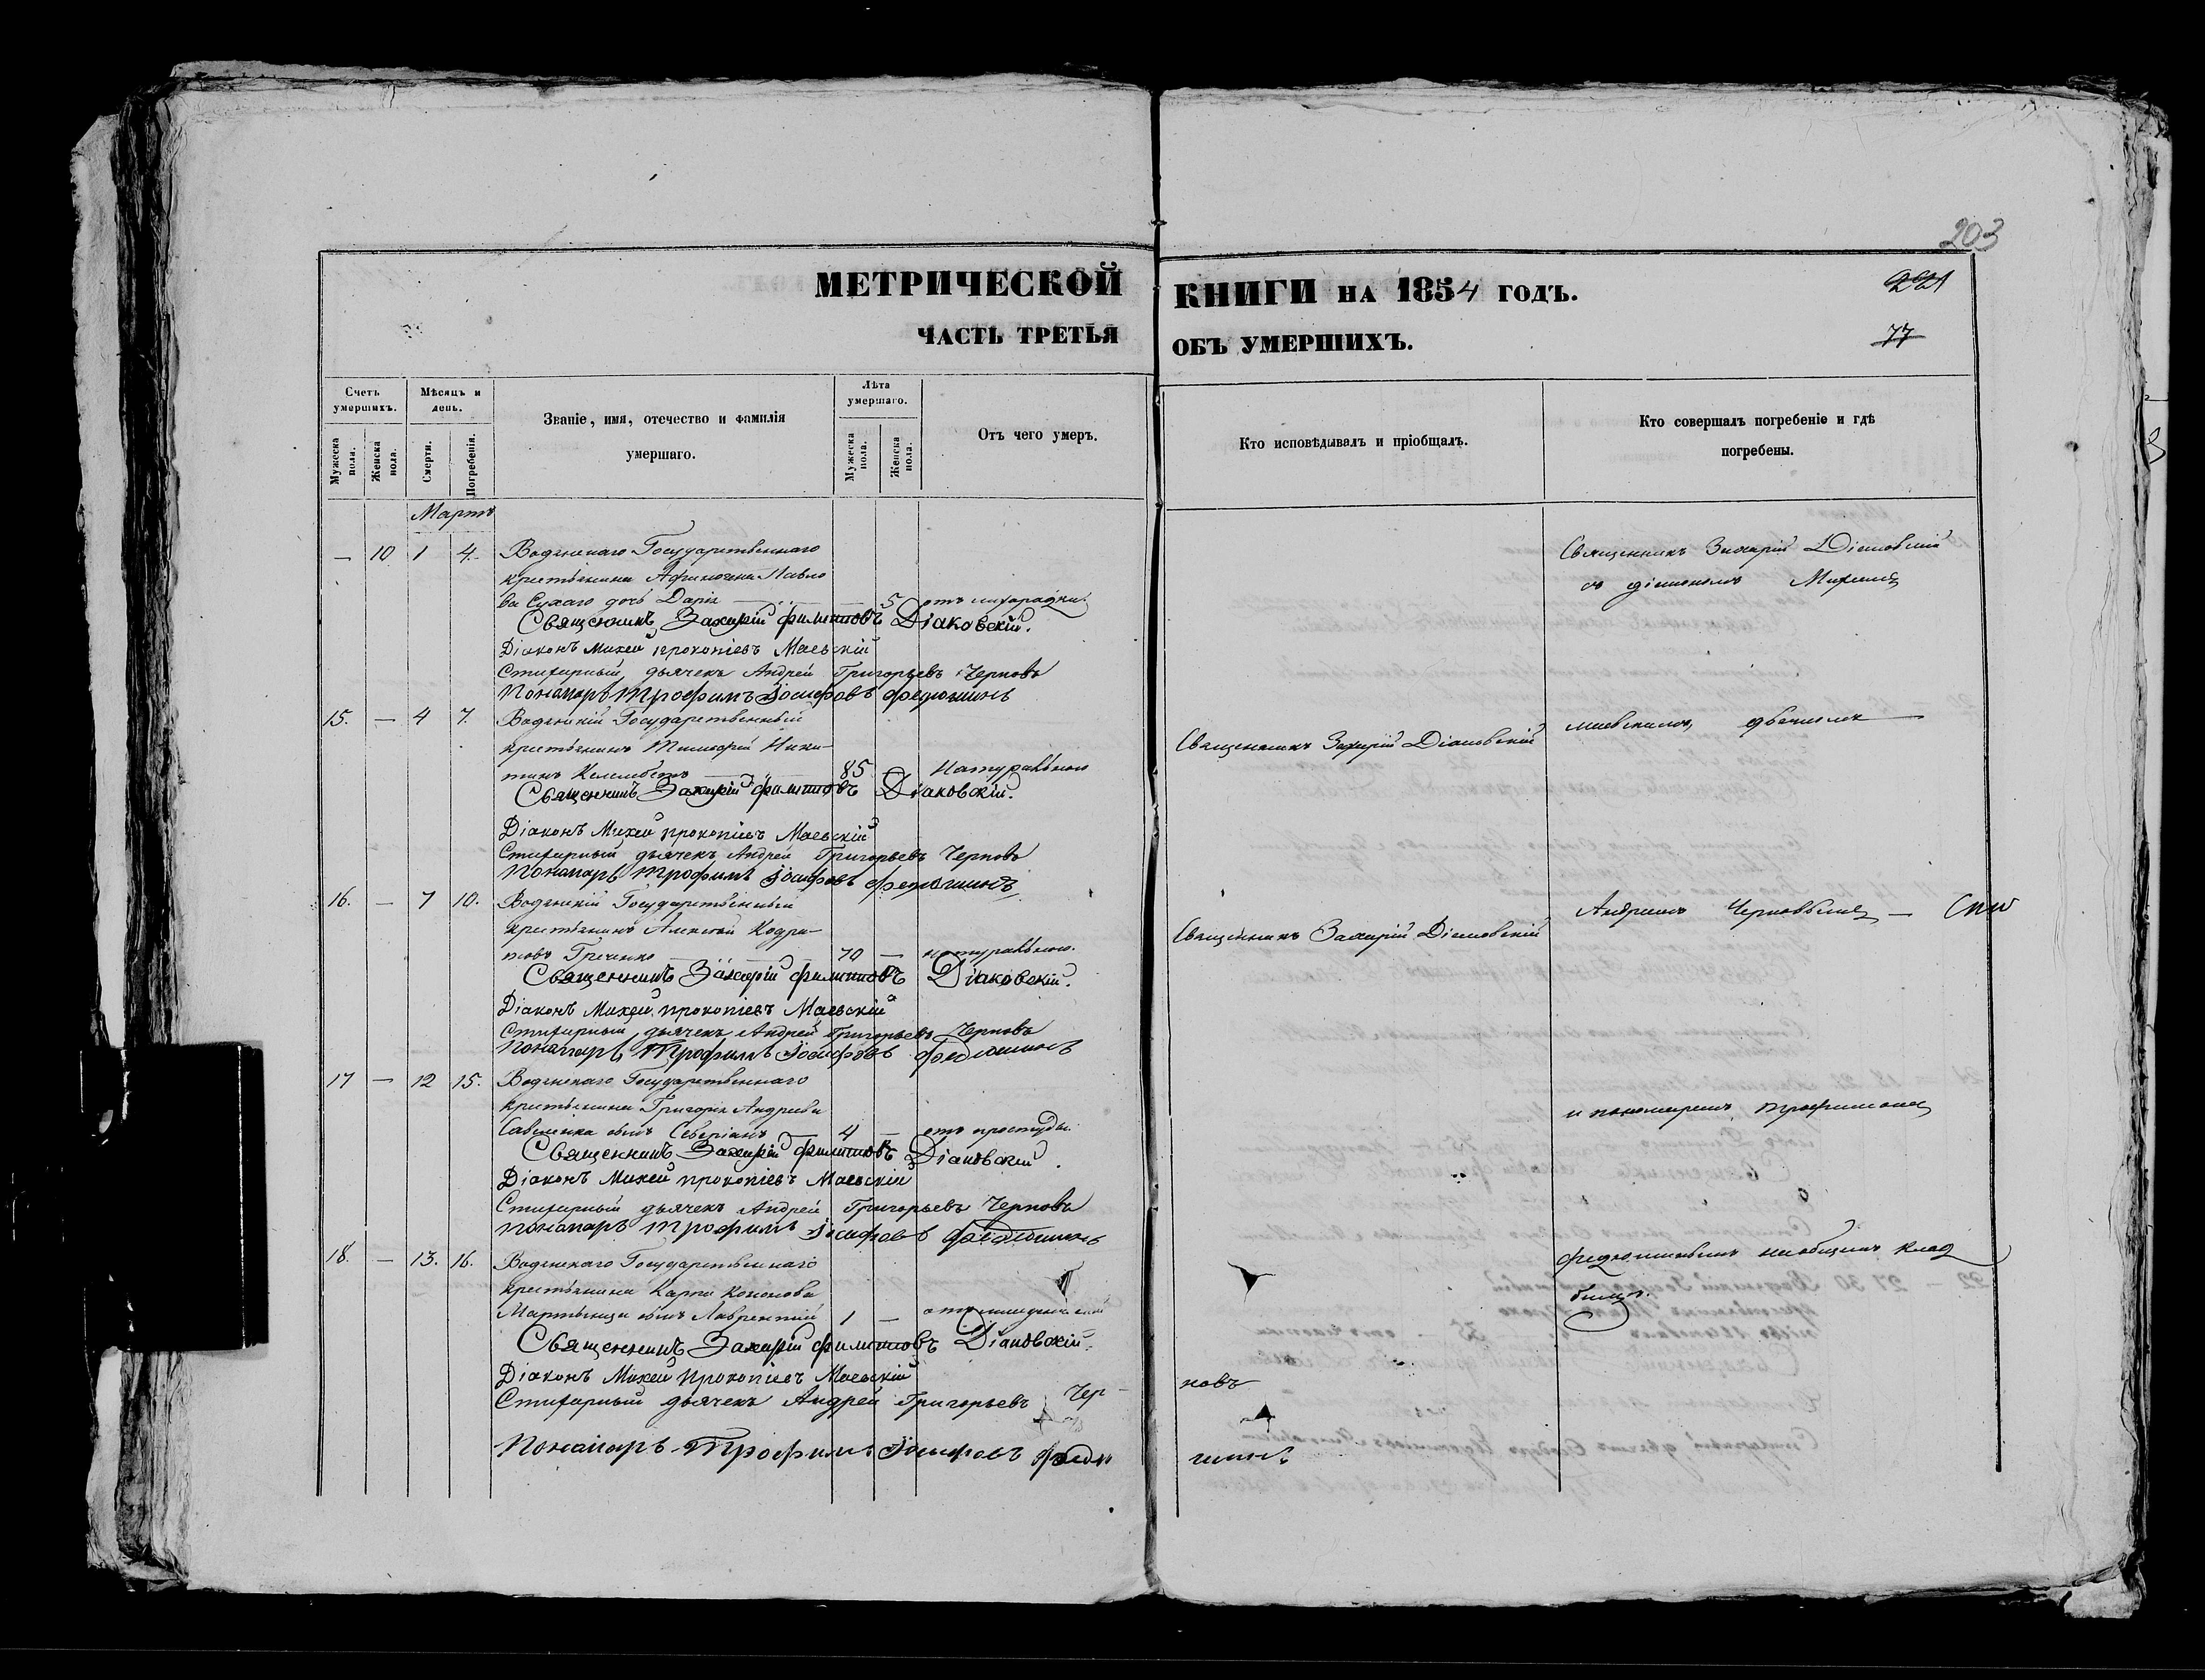 203
МЕТРИЧЕСКОЙ КНИГИ НА 1854 ГОДЪ.
221
ЧАСТЬ ТРЕТЬЯ ОБЪ УМЕРШИХЪ.
77
Счетъ умершихъ.
Мужеска пола.
Женска пола.
Мѣсяцъ и день.
Смерти.
Погребенія.
Званіе, имя, отечество и фамилія
умершаго.
Лѣта умершаго.
Мужеска пола.
Женска пола.
Отъ чего умеръ.
Кто исповѣдывалъ и пріобщалъ.
Кто совершалъ погребеніе и гдѣ
погребены.
Мартъ
— 10 1 4. Водянскаго Государственнаго
крестьянина Афиногена Павло
ва Сухаго дочь Дарія — 5 отъ лихорадки.
Священникъ Захарій Филиповъ Діаковскій.
Діаконъ Михей Прокопіевъ Маевскій
Стихарный дьячекъ Андрей Григорьевъ Черновъ
Пономарь Трофимъ Іосифовъ Федюшинъ
15. — 4 7. Водянскій Государственный
крестьянинъ Тимофей Ники-
тинъ 85 — Натуральною
Священникъ Захарій Филиповъ Діаковскій.
Діаконъ Михей Прокопіевъ Маевскій
Стихарный дьячекъ Андрей Григорьевъ Черновъ
Пономарь Трофимъ Іосифовъ Федюшинъ
16. — 7 10. Водянскій Государственный
крестьянинъ Алексей Кодра-
товъ Греченко 70 — натуральною.
Священникъ Захарій Филиповъ Діаковскій.
Діаконъ Михей Прокопіевъ Маевскій
Стихарный дьячекъ Андрей Григорьевъ Черновъ
Пономарь Трофимъ Іосифовъ Федюшинъ
17 — 12 15. Водянскаго Государственнаго
крестьянина Григорія Андреева
Савленка сынъ Северіанъ 4 — отъ простуды.
Священникъ Захарій Филиповъ Діаковскій.
Діаконъ Михей Прокопіевъ Маевскій
Стихарный дьячекъ Андрей Григорьевъ Черновъ
Пономарь Трофимъ Іосифовъ Федюшинъ
18. — 13. 16. Водянскаго Государственнаго
крестьянина Карпа Кононова
сынъ Лаврентій 1 — отъ младенческой
Священникъ Захарій Филиповъ Діаковскій.
Діаконъ Михей Прокопіевъ Маевскій
Стихарный дьячекъ Андрей Григорьевъ Чер-
новъ
Пономарь Трофимъ Іосифовъ Федю
шинъ
Священникъ Захарій Діаковскій
Священникъ Захарій Діаковскій
Священникъ Захарій Діаковскій
съ діакономъ Михеемъ
Маевскимъ, дьячкомъ —
Андреемъ Черновымъ —
и пономаремъ Трофимомъ
Федюшинымъ на общемъ клад
бищѣ.